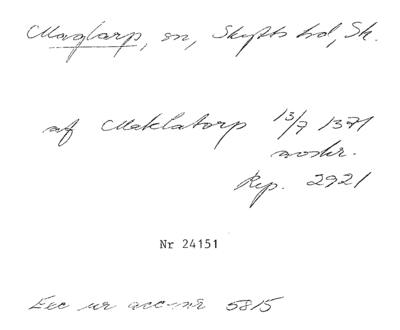 Maglarp, sn, Skytts hd, Sk.
af Maklatorp 13/7 1371
avskr.
Rep. 2921
Nr 24151
Exc ur acc-nr 5815